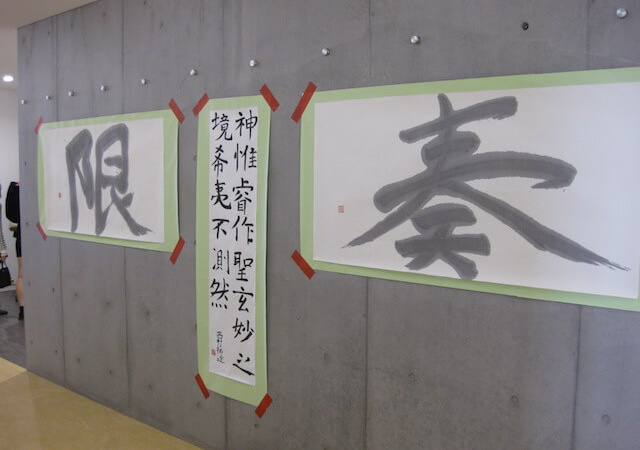 奏
神惟睿作聖玄妙之
境希夷不測然
限